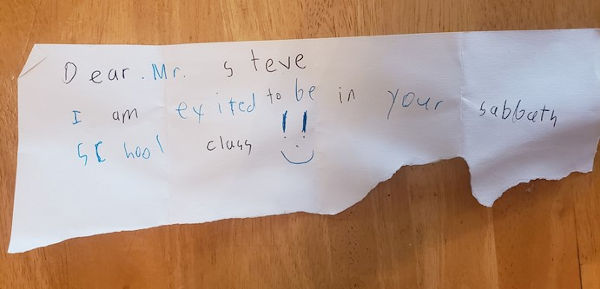 Dear. Mr. Steve
I am exited to be in your sabbath
SChool class !!